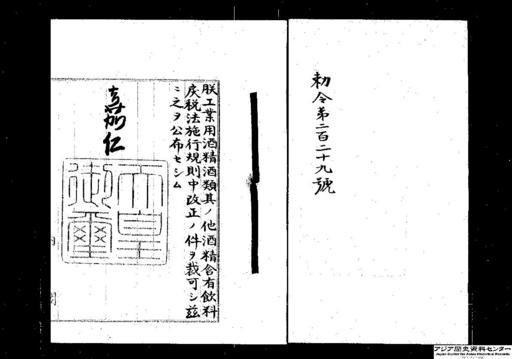 勅令第二百二十九號
朕工業用酒精酒類其ノ他酒精含有飲料
戻税法施行規則中改正ノ件ヲ裁可シ茲
ニ之ヲ公布セシム
嘉仁
天皇
御璽
アジア歴史資料センター
Japan Center for Asian Historical Records